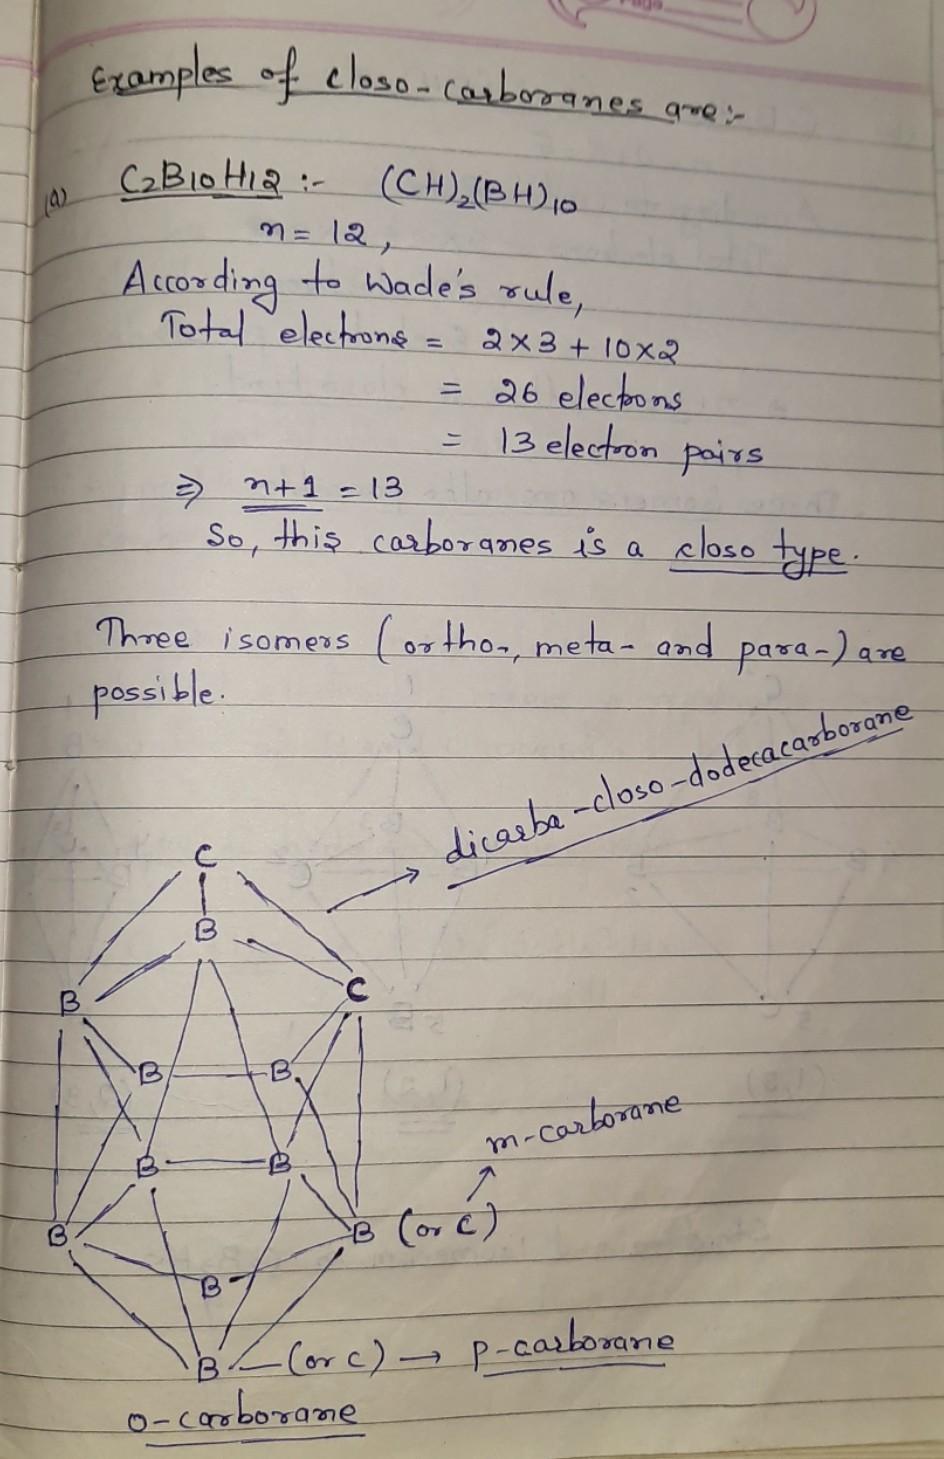 Page
Examples of closo-carboranes are:-
(a) C2B10H12 :- (CH)2(BH)10
n = 12,
According to Wade's rule,
Total electrons = 2×3 + 10×2
= 26 electrons
= 13 electron pairs
⇒ n+1 = 13
So, this carboranes is a closo type.
Three isomers (ortho-, meta- and para-) are
possible.
dicarba-closo-dodecacarborane
C
B
B C
B B
m-carborane
B B
B B (or C)
B
B (or C) → p-carborane
o-carborane